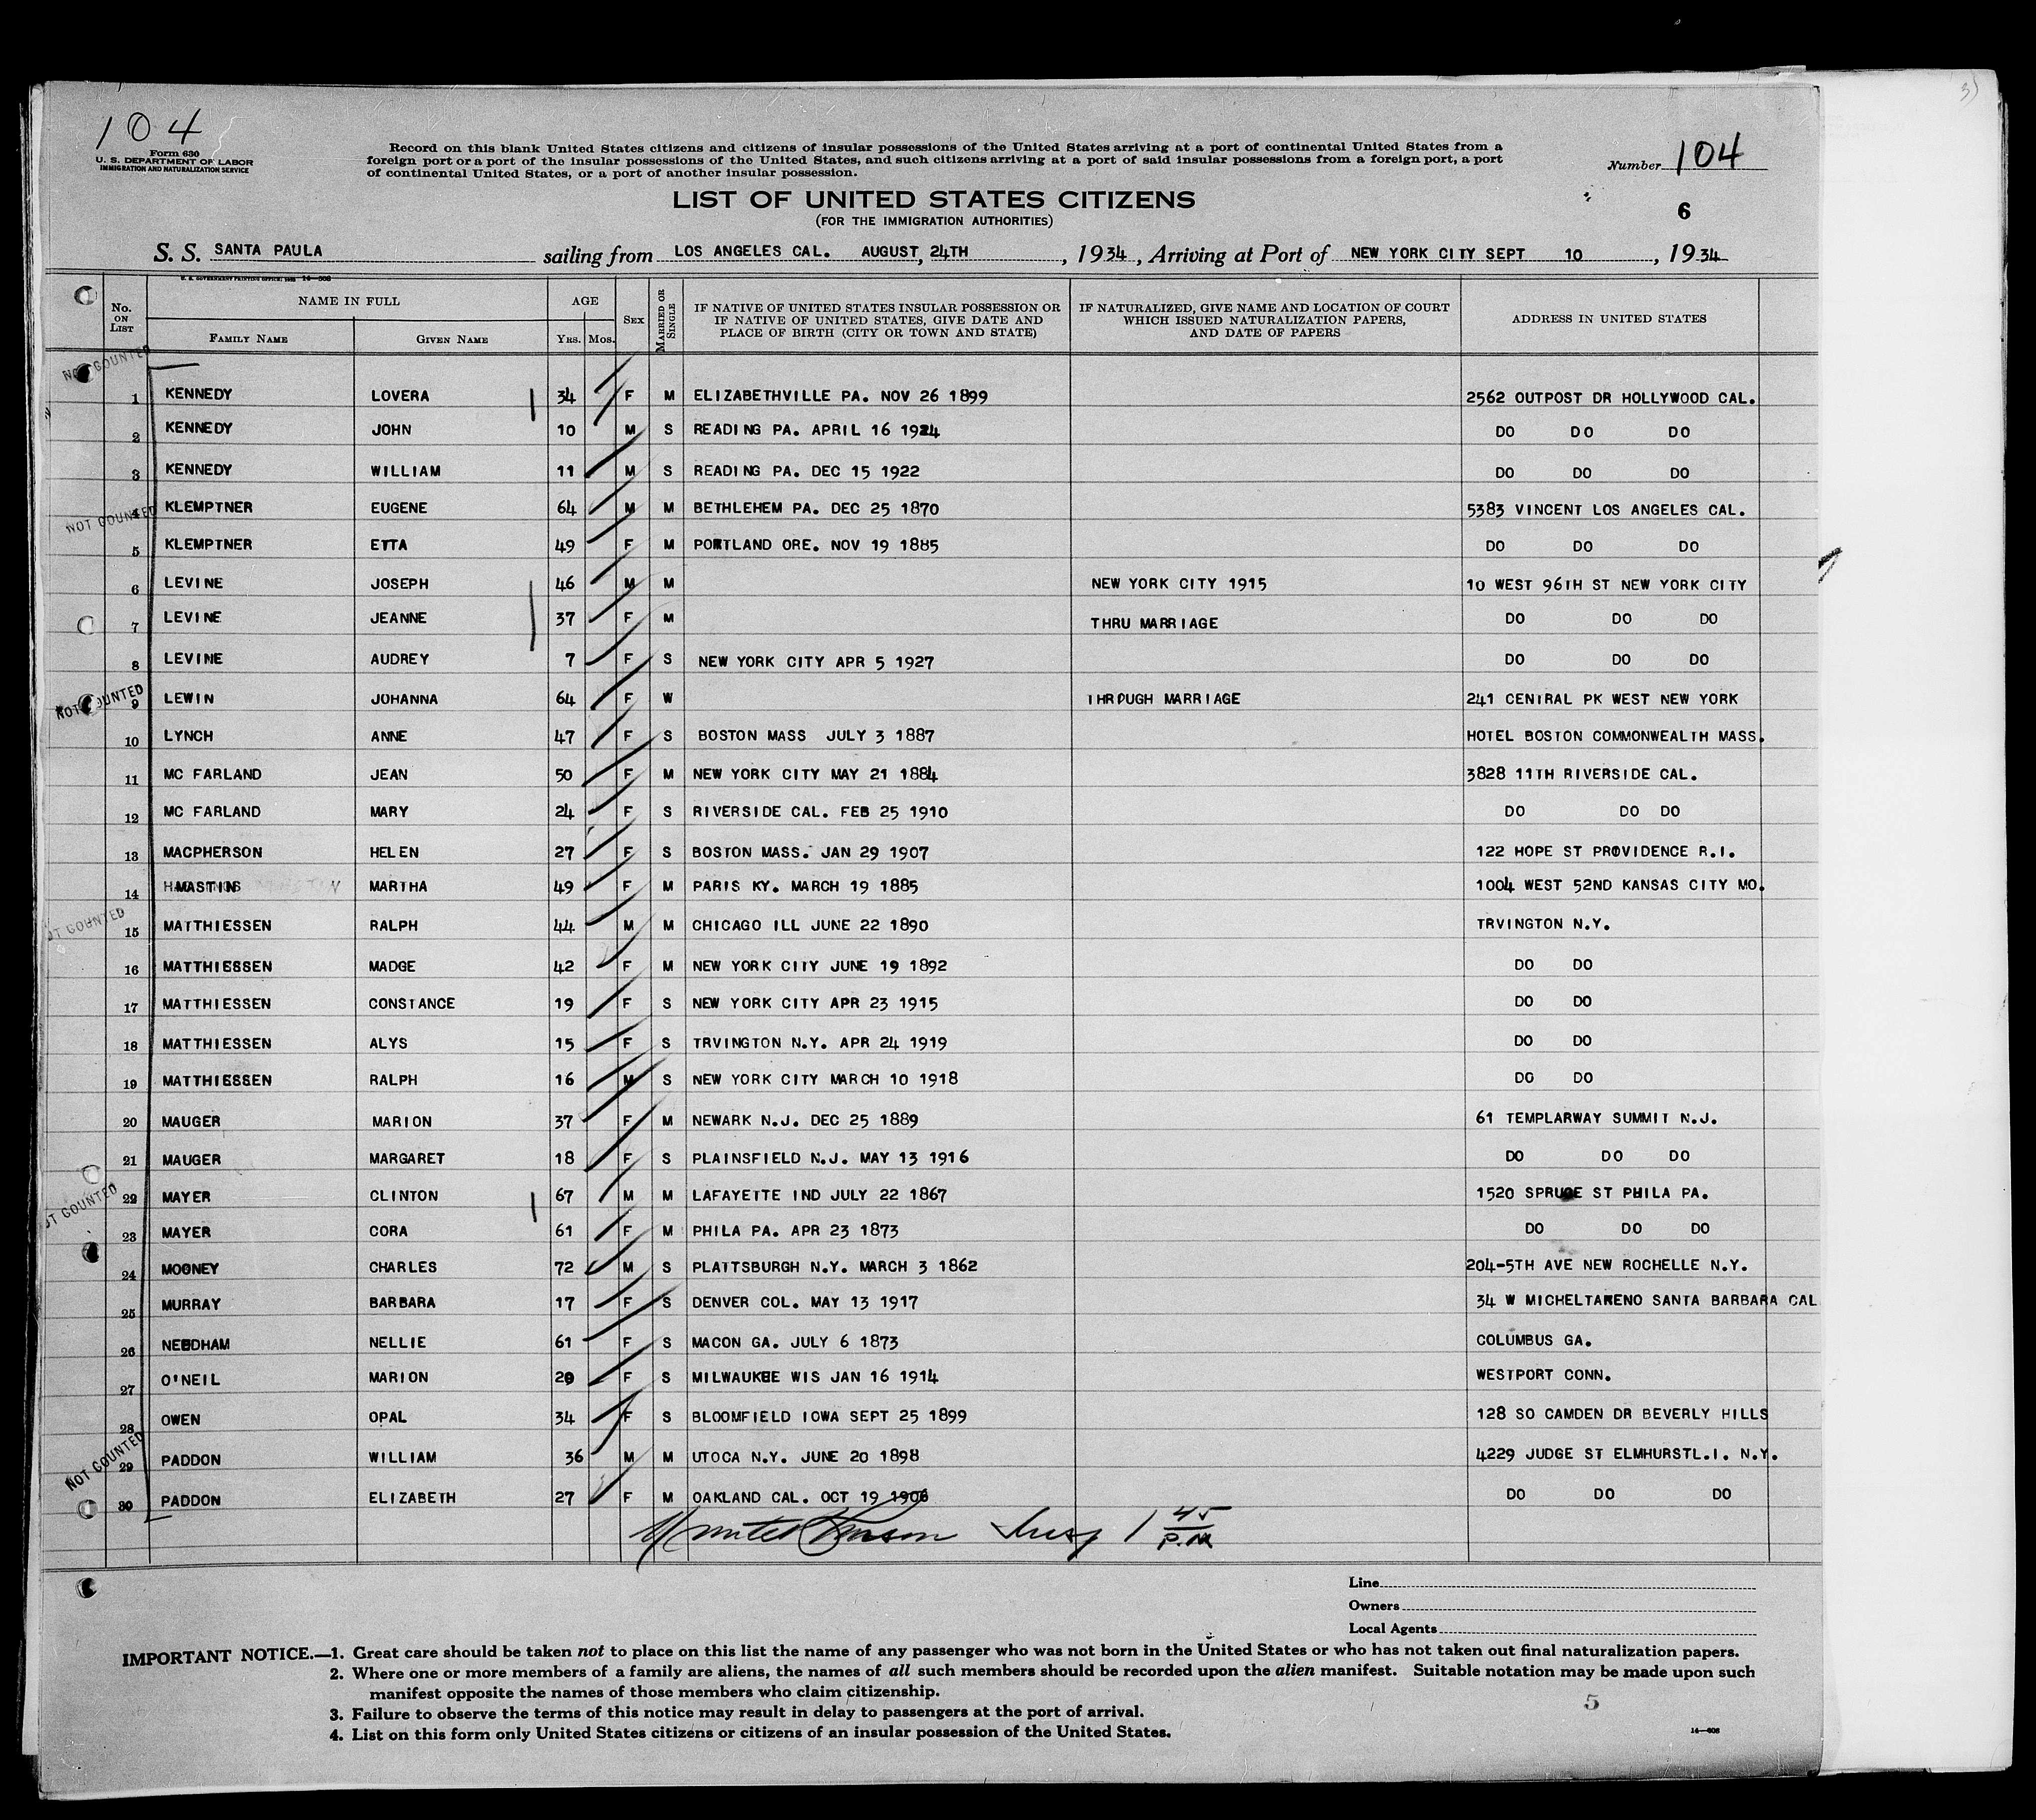 104
Form 630
U. S. DEPARTMENT OF LABOR
IMMIGRATION AND NATURALIZATION SERVICE
Record on this blank United States citizens and citizens of insular possessions of the United States arriving at a port of continental United States from a
foreign port or a port of the insular possessions of the United States, and such citizens arriving at a port of said insular possessions from a foreign port, a port
of continental United States, or a port of another insular possession.
Number 104
LIST OF UNITED STATES CITIZENS
(FOR THE IMMIGRATION AUTHORITIES)
6
S. S. SANTA PAULA sailing from LOS ANGELES CAL. AUGUST, 24TH, 1934, Arriving at Port of NEW YORK CITY SEPT 10, 1934
No. ON LIST NAME IN FULL FAMILY NAME GIVEN NAME AGE YRS. MOS. SEX MARRIED OR SINGLE IF NATIVE OF UNITED STATES INSULAR POSSESSION OR IF NATIVE OF UNITED STATES, GIVE DATE AND PLACE OF BIRTH (CITY OR TOWN AND STATE) IF NATURALIZED, GIVE NAME AND LOCATION OF COURT WHICH ISSUED NATURALIZATION PAPERS, AND DATE OF PAPERS ADDRESS IN UNITED STATES
NOT COUNTED
1 KENNEDY LOVERA 34 F M ELIZABETHVILLE PA. NOV 26 1899 2562 OUTPOST DR HOLLYWOOD CAL.
2 KENNEDY JOHN 10 M S READING PA. APRIL 16 1924 DO DO DO
3 KENNEDY WILLIAM 11 M S READING PA. DEC 15 1922 DO DO DO
NOT COUNTED
4 KLEMPTNER EUGENE 64 M M BETHLEHEM PA. DEC 25 1870 5383 VINCENT LOS ANGELES CAL.
5 KLEMPTNER ETTA 49 F M PORTLAND ORE. NOV 19 1885 DO DO DO
6 LEVINE JOSEPH 46 M M NEW YORK CITY 1915 10 WEST 96TH ST NEW YORK CITY
7 LEVINE JEANNE 37 F M THRU MARRIAGE DO DO DO
8 LEVINE AUDREY 7 F S NEW YORK CITY APR 5 1927 DO DO DO
NOT COUNTED
9 LEWIN JOHANNA 64 F W THROUGH MARRIAGE 241 CENTRAL PK WEST NEW YORK
10 LYNCH ANNE 47 F S BOSTON MASS JULY 3 1887 HOTEL BOSTON COMMONWEALTH MASS.
11 MC FARLAND JEAN 50 F M NEW YORK CITY MAY 21 1884 3828 11TH RIVERSIDE CAL.
12 MC FARLAND MARY 24 F S RIVERSIDE CAL. FEB 25 1910 DO DO DO
13 MACPHERSON HELEN 27 F S BOSTON MASS. JAN 29 1907 122 HOPE ST PROVIDENCE R.I.
14 MASTIN MARTHA 49 F M PARIS KY. MARCH 19 1885 1004 WEST 52ND KANSAS CITY MO.
OT COUNTED
15 MATTHIESSEN RALPH 44 M M CHICAGO ILL JUNE 22 1890 TRVINGTON N.Y.
16 MATTHIESSEN MADGE 42 F M NEW YORK CITY JUNE 19 1892 DO DO
17 MATTHIESSEN CONSTANCE 19 F S NEW YORK CITY APR 23 1915 DO DO
18 MATTHIESSEN ALYS 15 F S TRVINGTON N.Y. APR 24 1919 DO DO
19 MATTHIESSEN RALPH 16 M S NEW YORK CITY MARCH 10 1918 DO DO
20 MAUGER MARION 37 F M NEWARK N.J. DEC 25 1889 61 TEMPLARWAY SUMMIT N.J.
21 MAUGER MARGARET 18 F S PLAINSFIELD N.J. MAY 13 1916 DO DO DO
OT COUNTED
22 MAYER CLINTON 67 M M LAFAYETTE IND JULY 22 1867 1520 SPRUCE ST PHILA PA.
23 MAYER CORA 61 F M PHILA PA. APR 23 1873 DO DO DO
24 MOONEY CHARLES 72 M S PLATTSBURGH N.Y. MARCH 3 1862 204-5TH AVE NEW ROCHELLE N.Y.
25 MURRAY BARBARA 17 F S DENVER COL. MAY 13 1917 34 W MICHELTARENO SANTA BARBARA CAL
26 NEEDHAM NELLIE 61 F S MACON GA. JULY 6 1873 COLUMBUS GA.
27 O'NEIL MARION 20 F S MILWAUKEE WIS JAN 16 1914 WESTPORT CONN.
28 OWEN OPAL 34 F S BLOOMFIELD IOWA SEPT 25 1899 128 SO CAMDEN DR BEVERLY HILLS
NOT COUNTED
29 PADDON WILLIAM 36 M M UTOCA N.Y. JUNE 20 1898 4229 JUDGE ST ELMHURSTL.I. N.Y.
30 PADDON ELIZABETH 27 F M OAKLAND CAL. OCT 19 1906 DO DO DO
Insp 1 45 P.M
Line
Owners
Local Agents
IMPORTANT NOTICE.—1. Great care should be taken not to place on this list the name of any passenger who was not born in the United States or who has not taken out final naturalization papers.
2. Where one or more members of a family are aliens, the names of all such members should be recorded upon the alien manifest. Suitable notation may be made upon such
manifest opposite the names of those members who claim citizenship.
3. Failure to observe the terms of this notice may result in delay to passengers at the port of arrival.
4. List on this form only United States citizens or citizens of an insular possession of the United States.
5